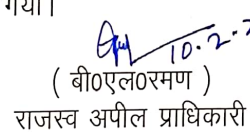 गया।
10.2.
( बी0एल0रमण )
राजस्व अपील प्राधिकारी